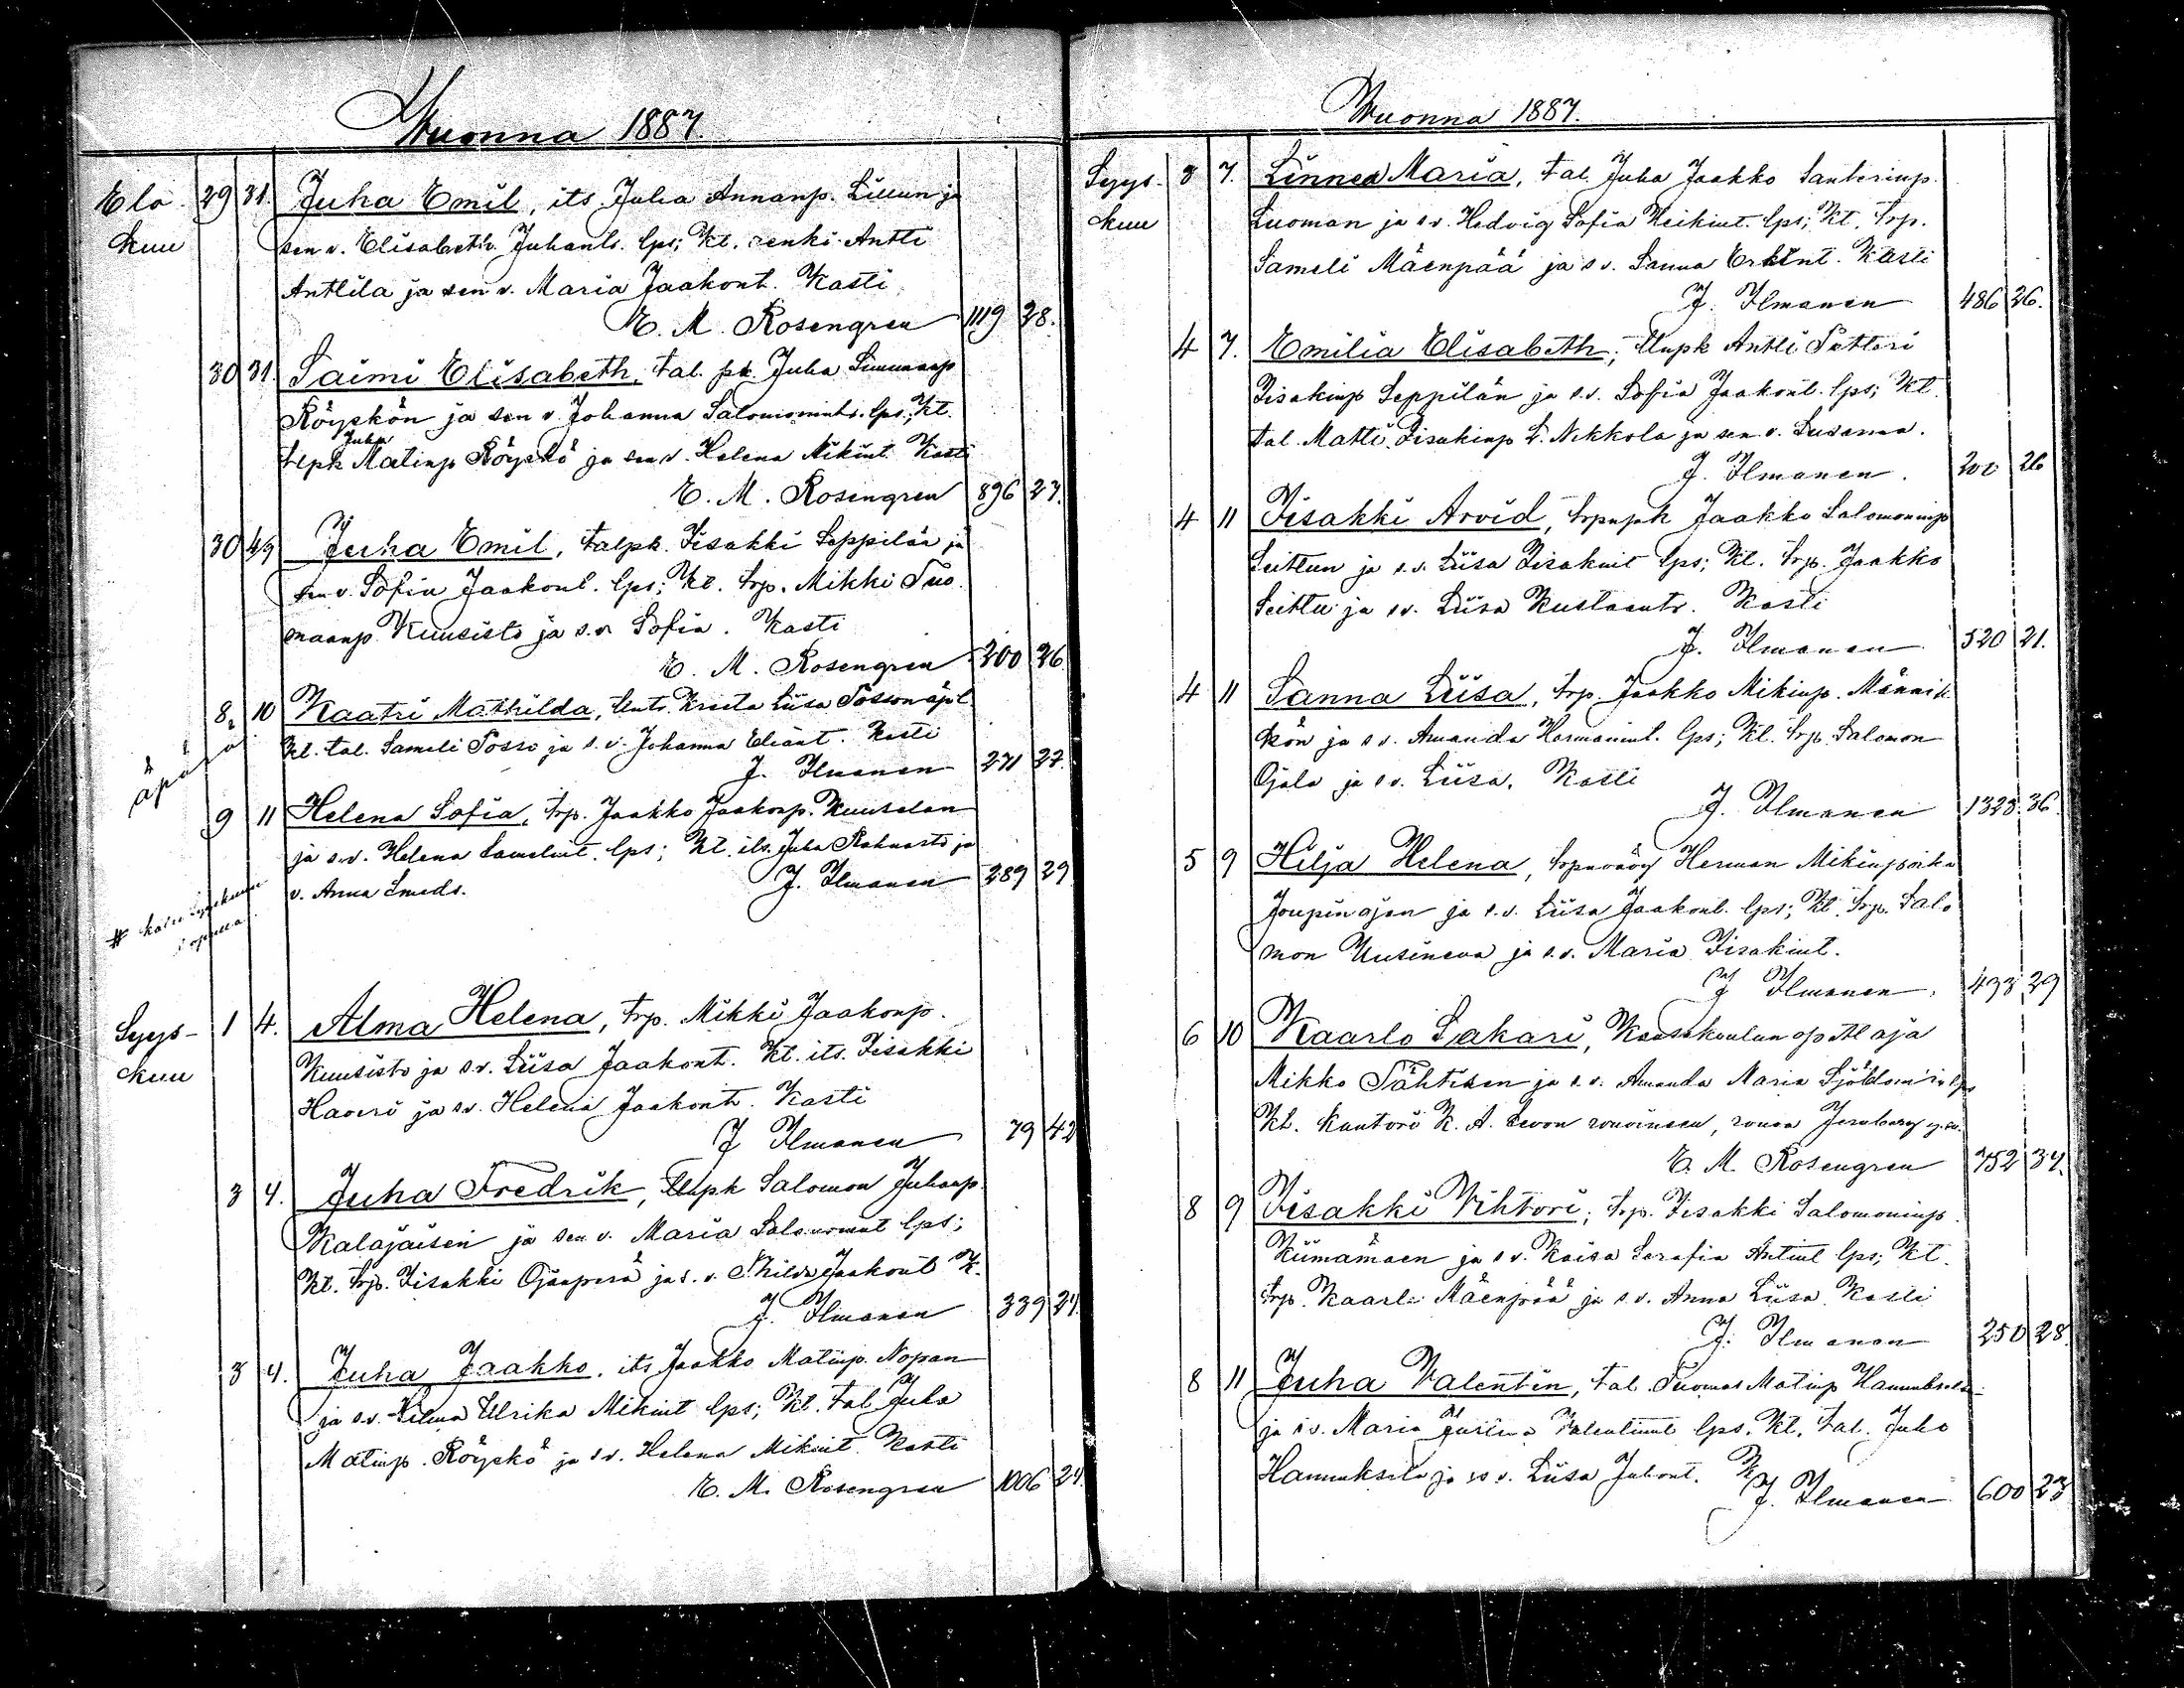 Wuonna 1887.
Elo- 29 31. Juha Emil, its. Juha Annanp. Liuun ja
kuu sen v. Elisabeth Juhant. lps; Kt. renki Antti
Anttila ja sen v. Maria Jaakont. Kasti
E. M. Rosengren 1119 28.
30 31. Saimi Elisabeth, tal. pk. Juha
Röyskön ja sen v. Johanna Salomonint. lps; Kt.
Juha
tlpk Matinp Röyskö ja sen v. Helena Mikint. Kasti
E. M. Rosengren 896 27.
30 4/9 Juha Emil, talpk. Iisakki Seppilän ja
sen v. Sofia Jaakont. lps; Kt. trp. Mikki Tuo
maanp. Kuusisto ja s.v. Sofia. Kasti
E. M. Rosengren 200 26
8 10 Kaatri Mathilda, tlentr. Kreeta Liisa Posson äpl
äpärä Kt. tal. Sameli Posso ja s.v. Johanna Eliant. Kasti
J. Ilmanen 271 27.
9 11 Helena Sofia, trp. Jaakko Jaakonp. Kuuselan
ja s.v. Helena Samelint. lps; Kt. its. Juha Rahnasto ja
v. Anna Smeds. J. Ilmanen 289 29
# katso syyskuun
lopussa
Syys- 1 4. Alma Helena, trp. Mikki Jaakonp.
kuu Kuusisto ja s.v. Liisa Jaakont. Kt. its. Iisakki
Haveri ja s.v. Helena Jaakont. Kasti
J Ilmanen 79 42
3 4. Juha Fredrik, tlnpk Salomon Juhanp.
Kalajaisen ja sen v. Maria Salomonint lps;
Kt. trp. Iisakki Ojanperä ja s.v. Thilda Jaakont K.
J. Ilmanen 339 24.
3 4. Juha Jaakko, its Jaakko Matinp. Nopan
ja s.v. Hilma Ulrika Mikint lps; Kt. tal Juha
Matinp. Röyskö ja s v. Helena Mikint. Kasti
E. M. Rosengren 1006 24.
Wuonna 1887.
Syys- 3 7. Linnea Maria, tal. Juha Jaakko Santerinp.
kuu Luoman ja s.v. Hedvig Sofia Heikint. lps; Kt. trp.
Sameli Mäenpää ja s v. Sanna Erkint. Kasti
J. Ilmanen 486 26.
4 7. Emilia Elisabeth, tlnpk Antti Petteri
Iisakinp Seppilän ja s.v. Sofia Jaakont. lps; Kt.
tal. Matti Iisakinp L. Nikkola ja sen v. Susanna.
J. Ilmanen. 200 26
4 11 Iisakki Arvid, trpnpk Jaakko Salomoninp
Seittun ja s.v. Liisa Iisakint lps; Kt. trp. Jaakko
Seittu ja s.v. Liisa Kustaantr. Kasti
J. Ilmanen 520 21.
4 11 Sanna Liisa, trp. Jaakko Mikinp. Männik
kön ja s v. Amanda Hermanint. lps; Kt. trp. Salomon
Ojala ja s v. Liisa. Kasti
J. Ilmanen 1323. 36.
5 9 Hilja Helena, trpnvävy Herman Mikinpoika
Joupinojan ja s.v. Liisa Jaakont. lps; Kt. trp. Salo
mon Uusineva ja s.v. Maria Iisakint.
J Ilmanen. 433 29
6 10 Kaarlo Sakari, Kansakoulun opettaja
Mikko Tähtisen ja s.v. Amanda Maria Sjöblom'in lps
Kt. Kanttori K. A. Levon rouvineen, rouva
E. M. Rosengren 752 34.
8 9 Iisakki Vihtori; trp. Iisakki Salomoninp.
Kiimamaen ja s v. Kaisa Serafia Antint lps; Kt.
trp. Kaarle Mäenpää ja s.v. Anna Liisa. Kasti
J. Ilmanen 250 28.
8 11 Juha Valentin, tal. Tuomas Matinp Hannuksela
ja s v. Maria Justiina Valentinint lps. Kt. tal. Juho
Hannuksela ja s v. Liisa Juhont. K
J. Ilmanen 600 23